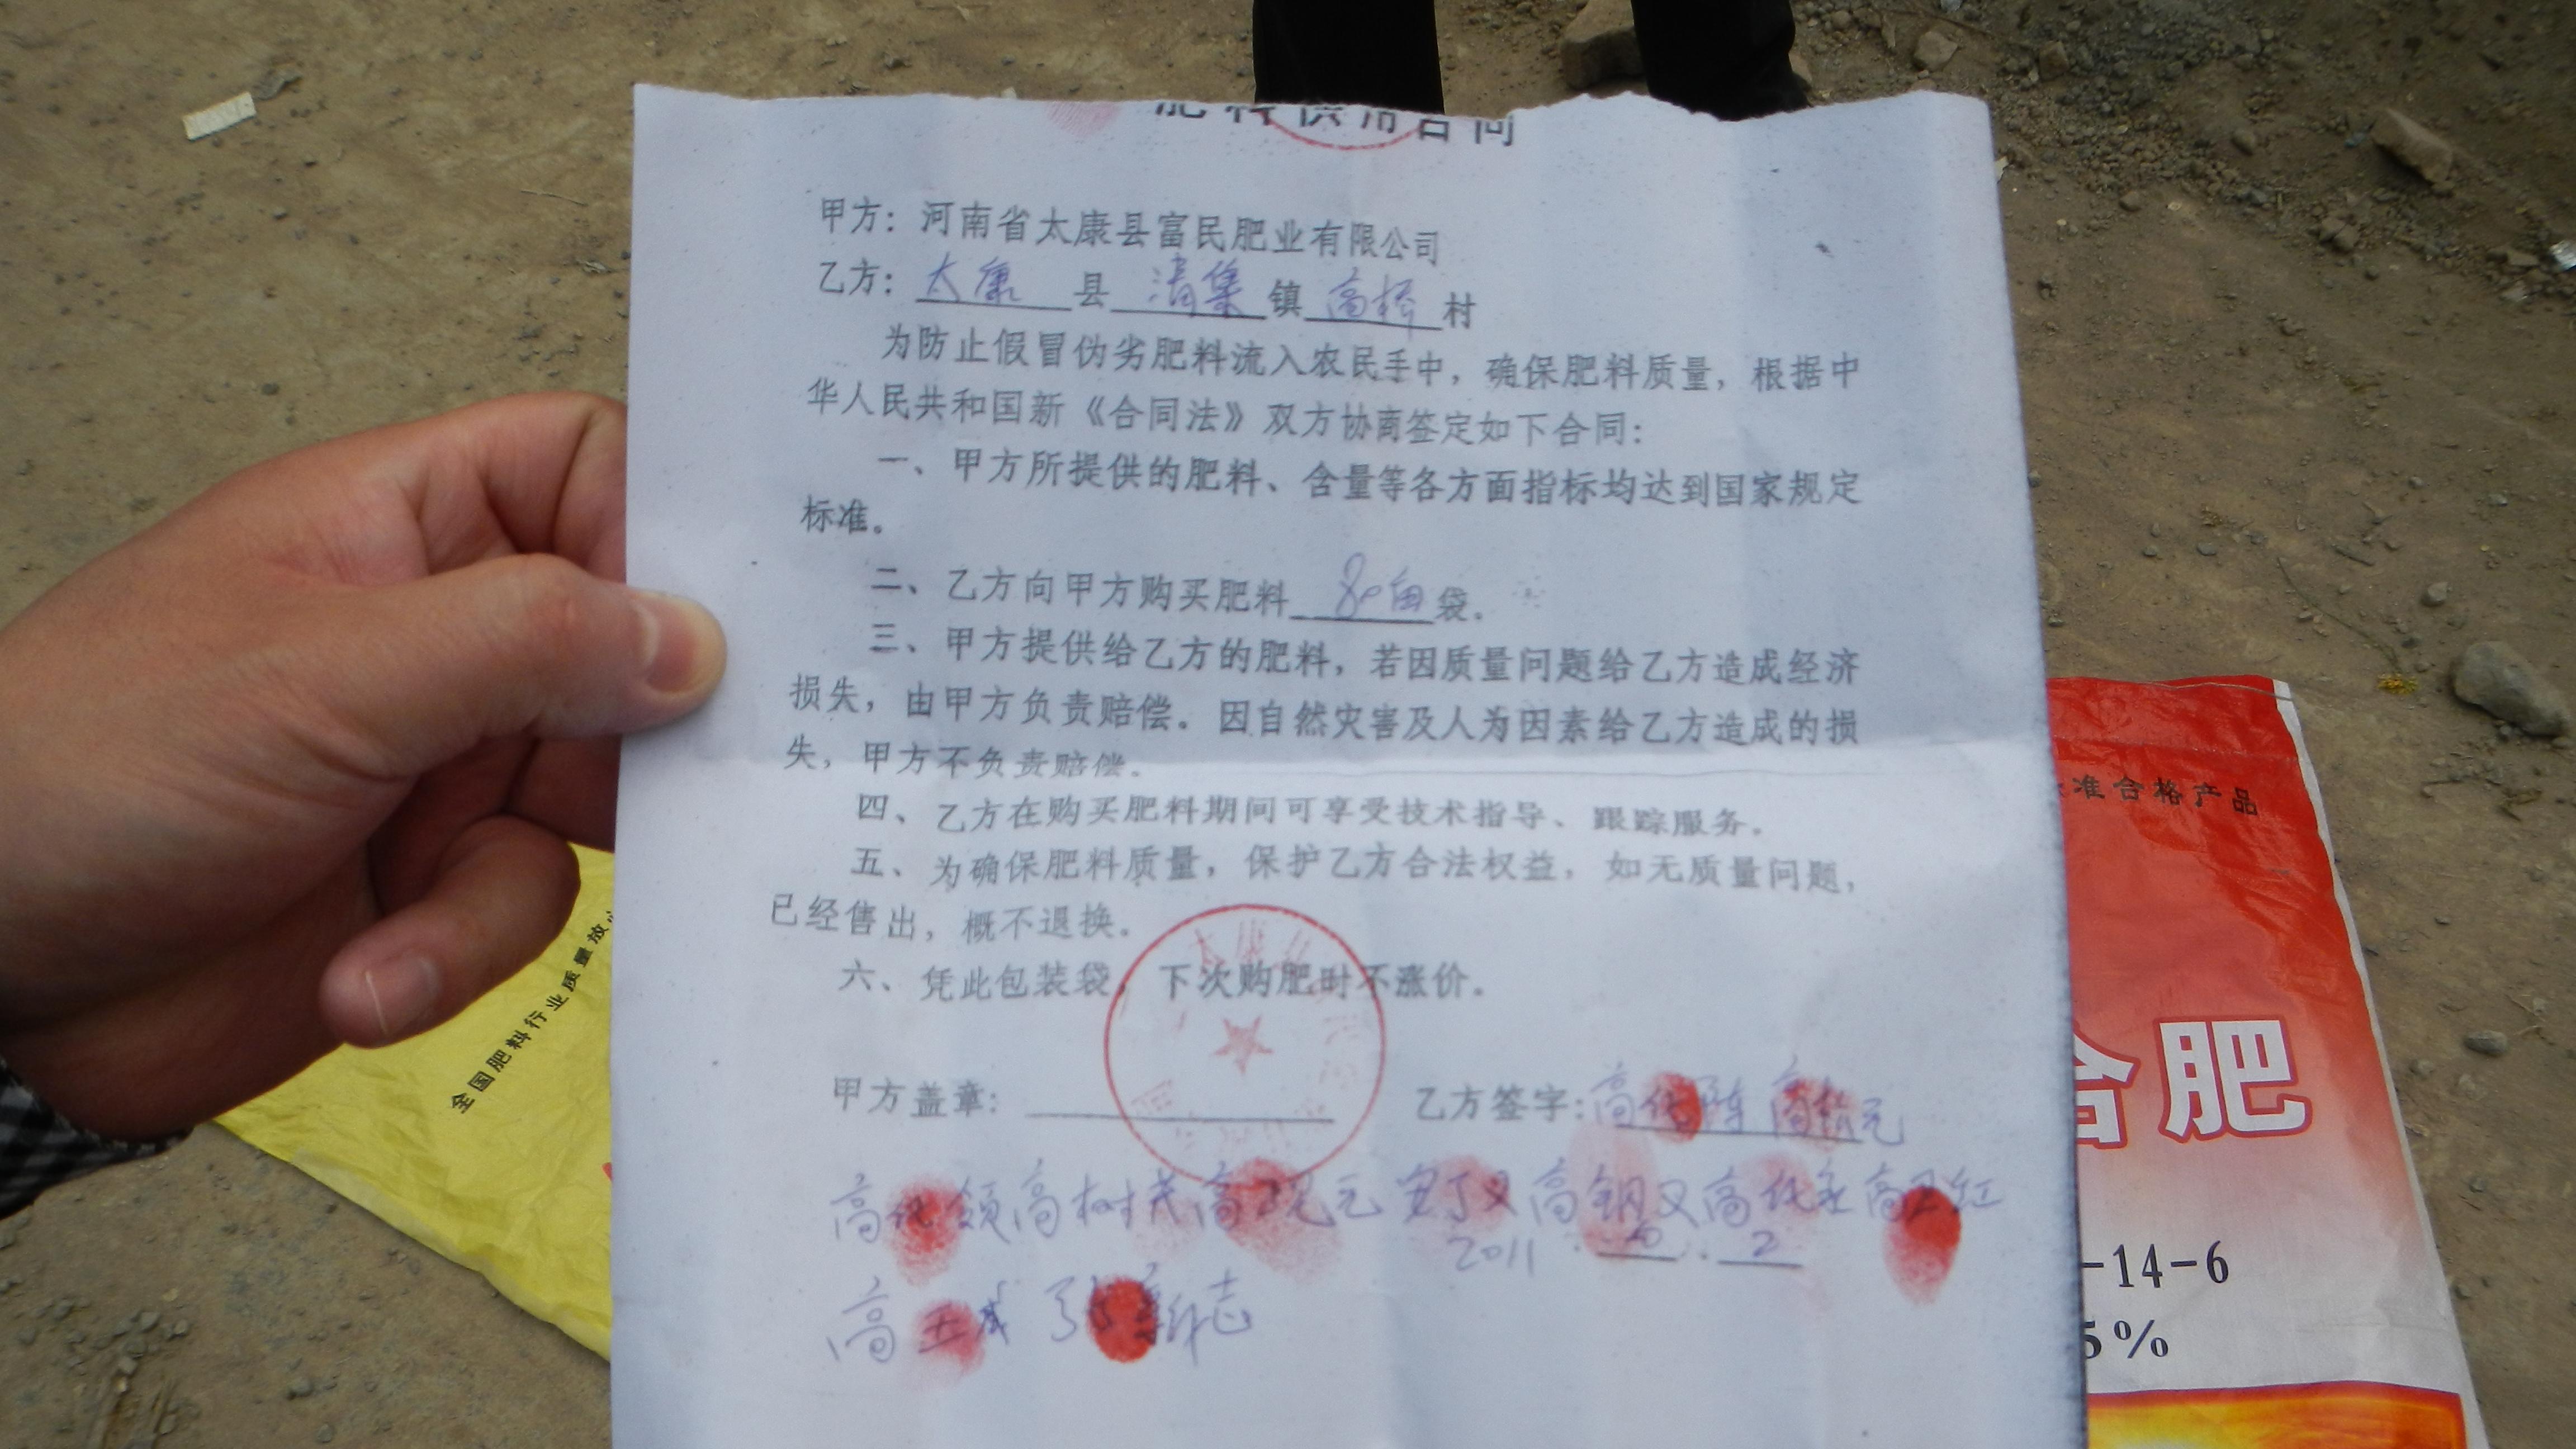 肥料供用合同
甲方：河南省太康县富民肥业有限公司
乙方：太康县清集镇高桥村
为防止假冒伪劣肥料流入农民手中，确保肥料质量，根据中
华人民共和国新《合同法》双方协商签定如下合同：
一、甲方所提供的肥料、含量等各方面指标均达到国家规定
标准。
二、乙方向甲方购买肥料袋。
三、甲方提供给乙方的肥料，若因质量问题给乙方造成经济
损失，由甲方负责赔偿。因自然灾害及人为因素给乙方造成的损
失，甲方不负责赔偿。
四、乙方在购买肥料期间可享受技术指导、跟踪服务。
五、为确保肥料质量，保护乙方合法权益，如无质量问题，
已经售出，概不退换。
六、凭此包装袋，下次购肥时不涨价。
甲方盖章：
乙方签字：高 高元
高领高树高元高钢又高高红
2011 . . 2
高成 志
全国肥料行业质量放心
准合格产品
合肥
-14-6
5%